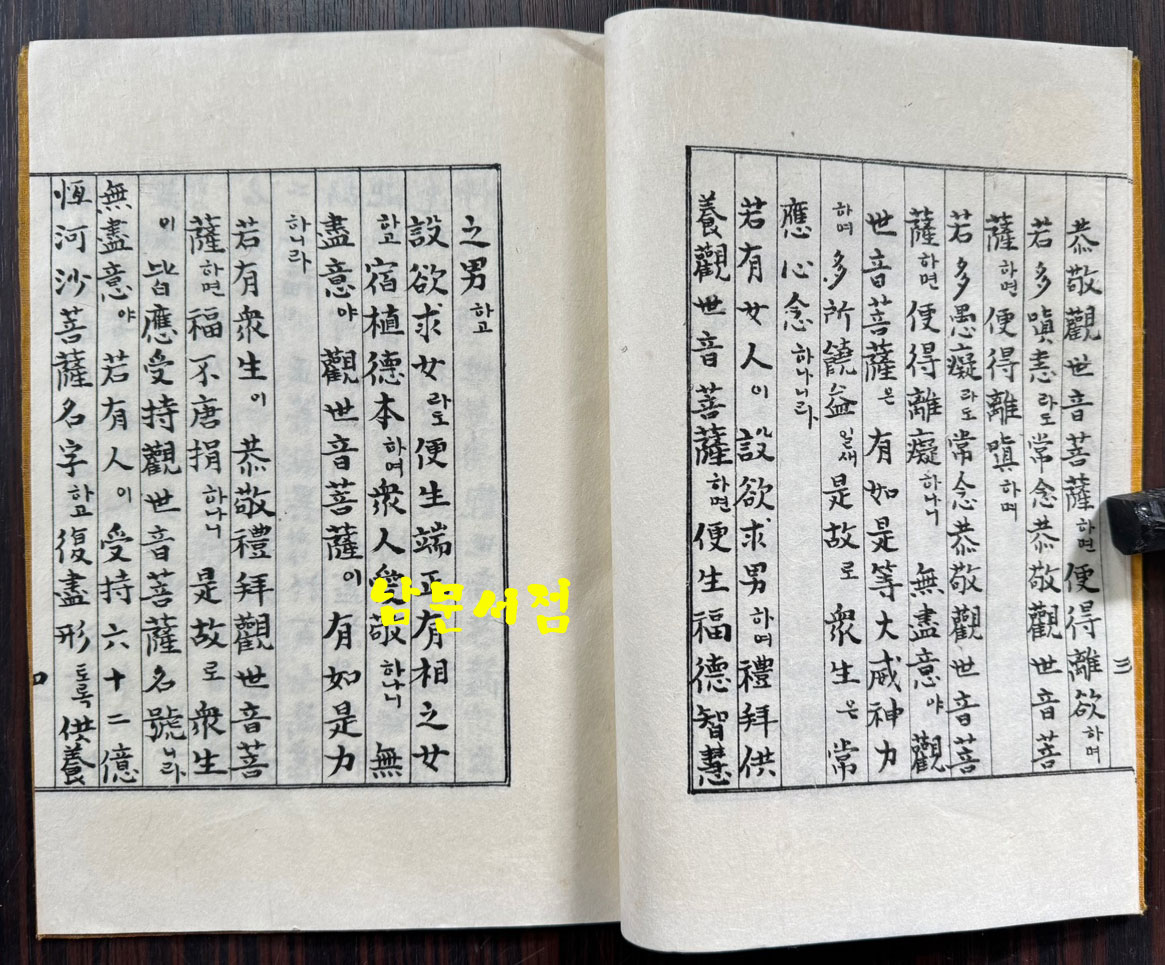 恭敬觀世音菩薩하면便得離欲하며
若多嗔恚라도常念恭敬觀世音菩
薩하면便得離嗔하며
若多愚癡라도常念恭敬觀世音菩
薩하면便得離癡하나니 無盡意야觀
世音菩薩은 有如是等大威神力
하며多所饒益일새是故로衆生은常
應心念하나니라
若有女人이 設欲求男하며禮拜供
養觀世音菩薩하면便生福德智慧
三
之男하고
設欲求女라도便生端正有相之女
하고宿植德本하며衆人愛敬하나니 無
盡意야 觀世音菩薩이 有如是力
하니라
若有衆生이 恭敬禮拜觀世音菩
薩하면福不唐捐하나니 是故로衆生
이皆應受持觀世音菩薩名號니라
無盡意야 若有人이 受持六十二億
恒河沙菩薩名字하고復盡形토록供養
남문서점